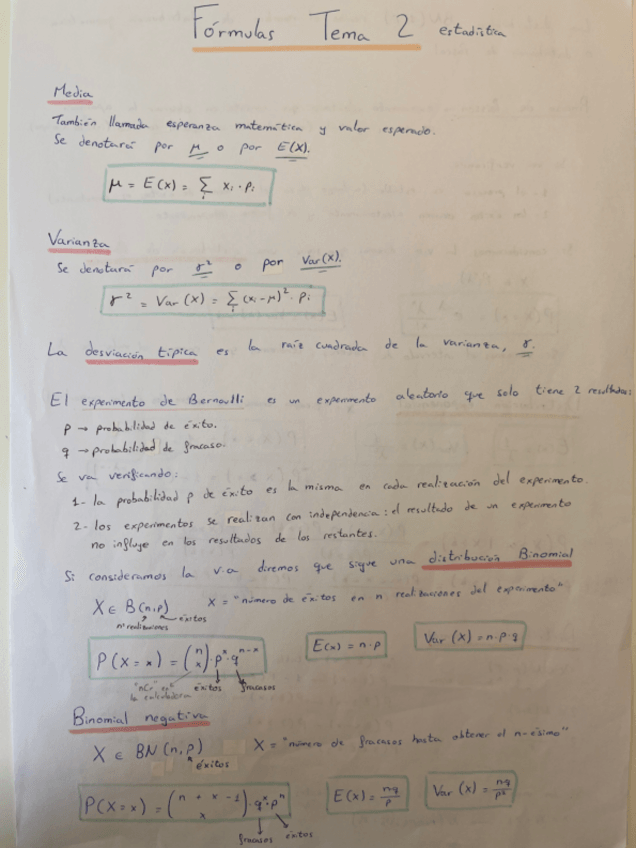 Fórmulas Tema 2 estadística
Media
También llamada esperanza matemática y valor esperado.
Se denotará por μ o por E(X).
μ = E(x) = Σ xi · pi
Varianza
Se denotará por σ² o por Var(X).
σ² = Var(X) = Σ (xi - μ)² · pi
La desviación típica es la raíz cuadrada de la varianza, σ.
El experimento de Bernoulli es un experimento aleatorio que solo tiene 2 resultados:
p → probabilidad de éxito.
q → probabilidad de fracaso.
Se va verificando:
1- la probabilidad p de éxito es la misma en cada realización del experimento.
2- los experimentos se realizan con independencia: el resultado de un experimento
no influye en los resultados de los restantes.
Si consideramos la v.a diremos que sigue una distribución Binomial
X ∈ B(n,p) X = "número de éxitos en n realizaciones del experimento"
nº realizaciones éxitos
P(X = x) = (n x) · p^x · q^(n-x) E(x) = n · p Var(X) = n · p · q
"nCr" en la calculadora éxitos fracasos
Binomial negativa
X ∈ BN(n,p) X = "número de fracasos hasta obtener el n-ésimo"
éxitos
P(X = x) = (n + x - 1 x) · q^x · p^n E(x) = n·q/p Var(x) = n·q/p²
fracasos éxitos